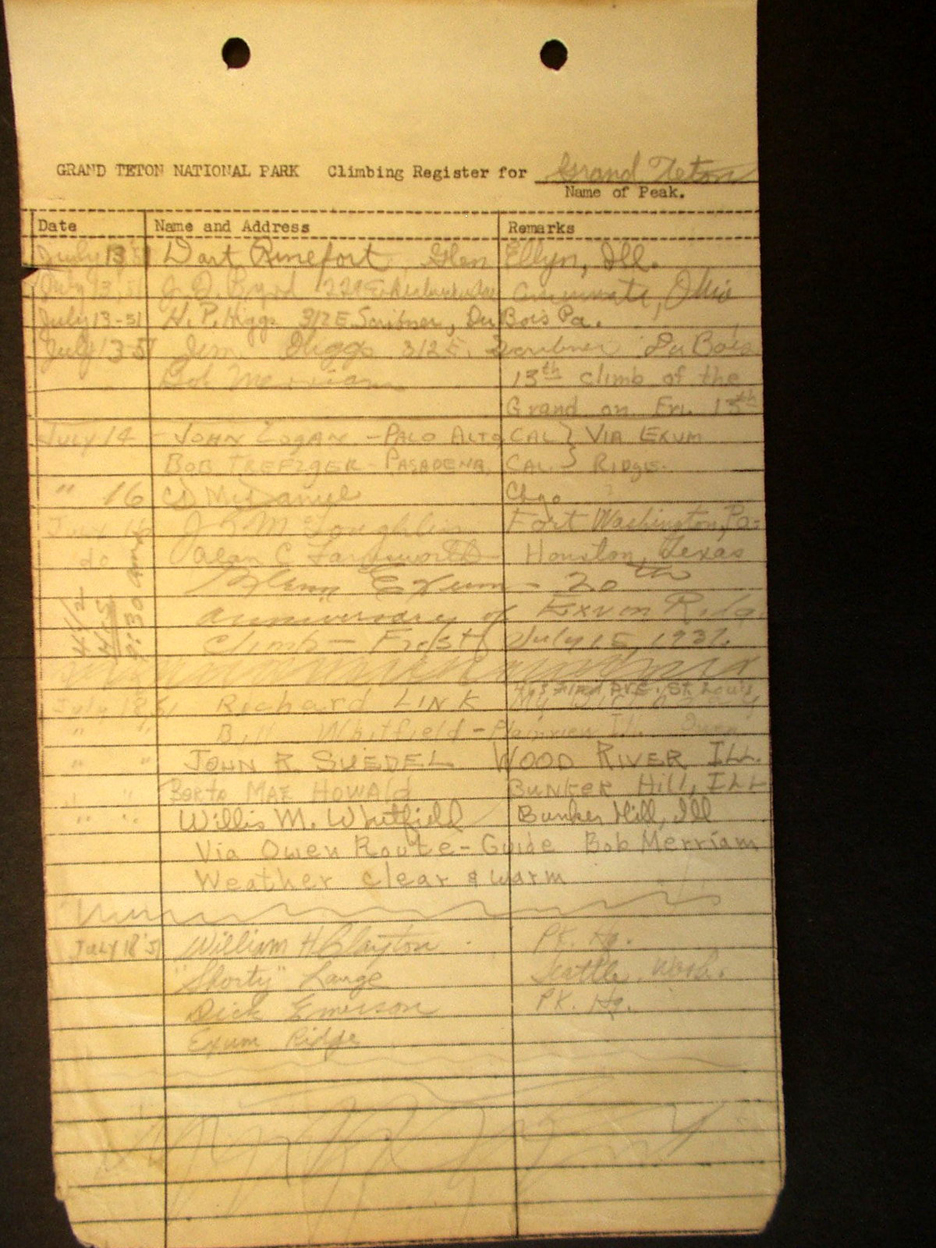 GRAND TETON NATIONAL PARK Climbing Register for Grand Teton
Name of Peak.
Date Name and Address Remarks
July 13 Dart Rinefort, Glen Ellyn, Ill.
July 13, 51 J. D. Byrd Cincinnati, Ohio
July 13-51 H. P. Higgs 312 E. Scribner, Du Bois Pa.
July 13-51 Jim Higgs 312 E. Scribner Du Bois
Bob Merriam 13th climb of the
Grand on Fri. 13th
July 14 JOHN LOGAN - PALO ALTO CAL } VIA EXUM
BOB TREFZGER - PASADENA, CAL. } RIDGE.
" 16 CD McDaniel Chgo
J McLoughlin Fort Washington, Pa.
do Alan C Farnsworth Houston, Texas
Glenn Exum - 20th
anniversary of Exum Ridge
Climb - First July 15, 1931.
Ave. St. Louis
July 18, 51 Richard LINK
" " Bill Whitfield - Plainview Ill.
" " JOHN R. SUEDEL WOOD RIVER ILL.
MAE HOWALD BUNKER Hill, ILL
" " Willis M. Whitfield Bunker Hill, Ill
Via Owen Route - Guide Bob Merriam
Weather clear & warm
July 18 '51 William H Clayton. PK. Hq.
"Shorty" Lange Seattle, Wash.
Dick Emerson PK. Hq.
Exum Ridge